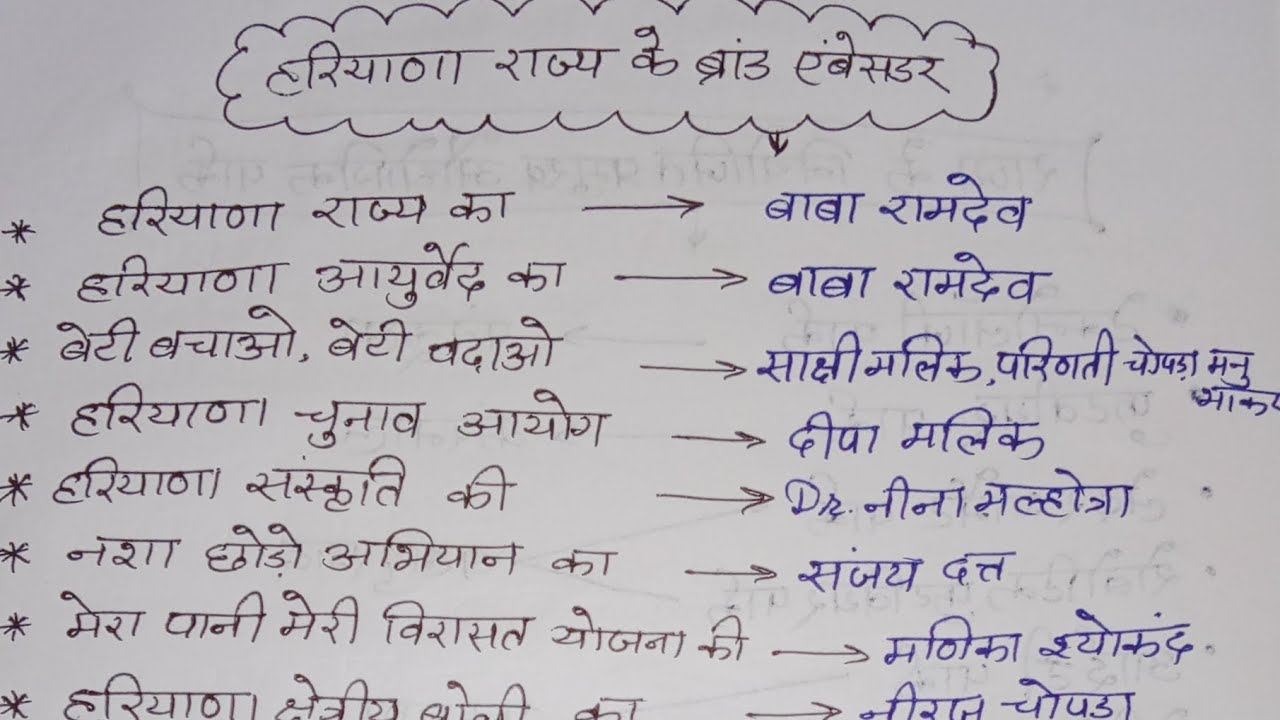 हरियाणा राज्य के ब्रांड एंबेसडर
* हरियाणा राज्य का → बाबा रामदेव
* हरियाणा आयुर्वेद का → बाबा रामदेव
* बेटी बचाओ, बेटी पढाओ → साक्षी मलिक, परिणती चोपड़ा मनु
भाकर
* हरियाणा चुनाव आयोग → दीपा मलिक
* हरियाणा संस्कृति की → Dr. नीना मल्होत्रा
* नशा छोड़ो अभियान का → संजय दत्त
* मेरा पानी मेरी विरासत योजना की → मणिका श्योकंद
* हरियाणा क्षेत्रीय बोली का → नीरज चोपडा